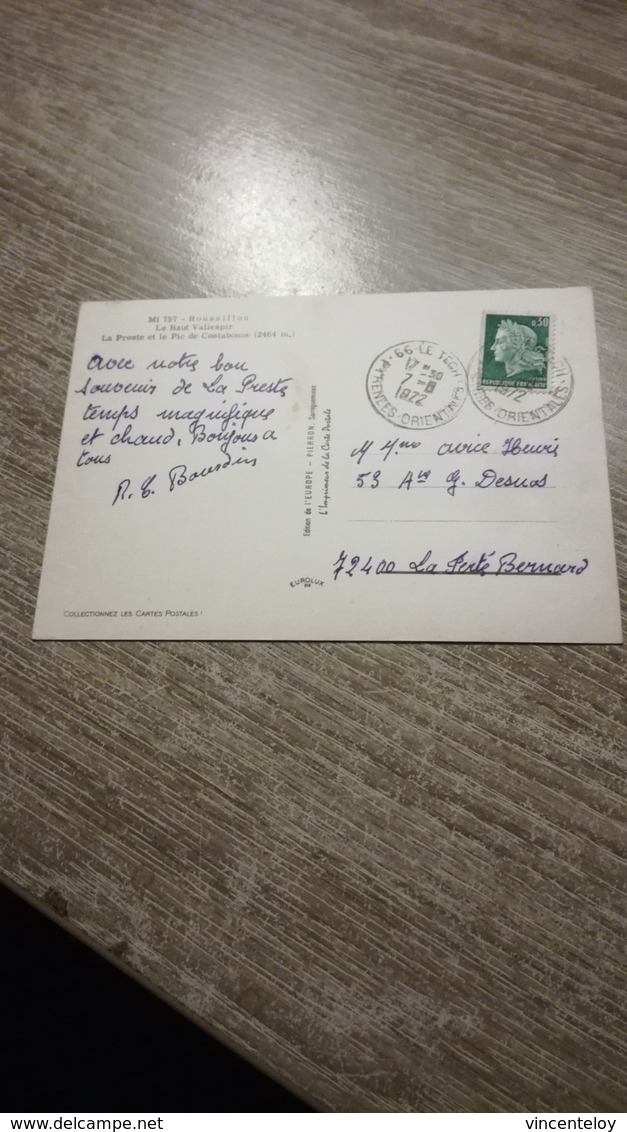 MI 757 - Roussillon
Le Haut Vallespir
La Preste et le Pic de Costabonne (2464 m.)
Avec notre bon
souvenir de La Preste
temps magnifique
et chaud, Bonjour a
tous
R. C. Bourdin
COLLECTIONNEZ LES CARTES POSTALES !
Edition de l'EUROPE - PIERRON, Sarreguemines
L'Imprimeur de la Carte Postale
EUROLUX
66 LE TECH
17 H 30
7 - 8
1972
PYRENEES-ORIENTALES
0,30
REPUBLIQUE FRANÇAISE
1972
ORIENTALES
M Mme Henri
53 Av G. Desnos
72400 La Ferté Bernard
delcampe.net
vincenteloy